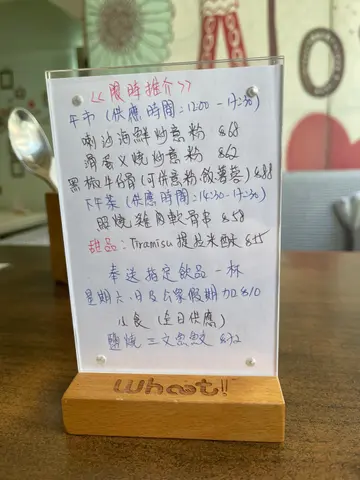 <<限時推介>>
午市 (供應時間:12:00-17:30)
喇沙海鮮炒意粉 $68
滑蛋叉燒炒意粉 $62
黑椒牛仔骨(可伴意粉/飯/薯蓉) $88
下午茶 (供應時間:14:30-17:30)
照燒雞月軟骨串 $58
甜品: Tiramisu 提拉米酥 $55
奉送指定飲品一杯
星期六、日及公眾假期加$10
小食 (全日供應)
鹽燒三文魚鮫 $72
Whoot!!